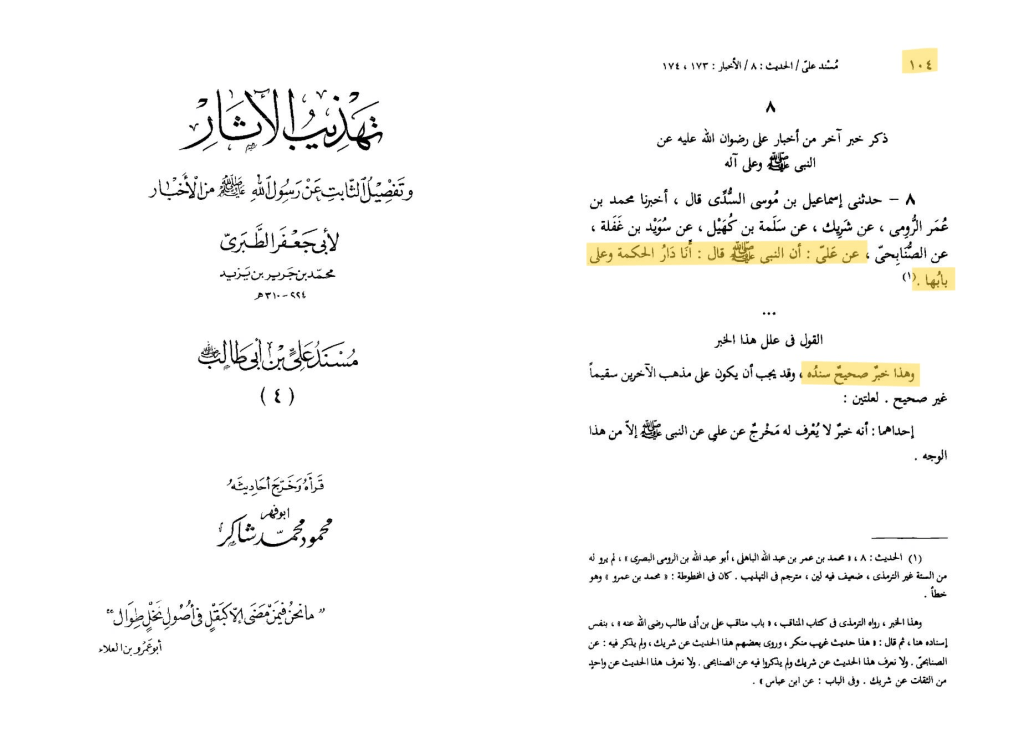 تهذيب الآثار
وتفصيل الثابت عن رسول الله ﷺ من الأخبار
لأبي جعفر الطبرى
محمد بن جرير بن يزيد
٢٢٤ - ٣١٠ هـ
مسند علي بن أبي طالب
( ٤ )
قرأه وخرج أحاديثه
أبو فهر
محمود محمد شاكر
« ما نحن فيمن مضى إلا كبقل في أصول نخل طوال »
أبو عمرو بن العلاء
١٠٤
مُسْند علىّ / الحديث : ٨ / الأخبار : ١٧٣ ، ١٧٤
٨
ذكر خبر آخر من أخبار على رضوان الله عليه عن
النبى ﷺ وعلى آله
٨ – حدثنى إسماعيل بن مُوسى السُّدِّى قال ، أخبرنا محمد بن
عُمَر الرُّومى ، عن شَرِيك ، عن سَلَمة بن كُهَيْل ، عن سُوَيْد بن غَفَلة ،
عن الصُّنَابحىّ ، عن عَلىّ : أن النبى ﷺ قال : أَنَا دَارُ الحكمة وعلى
بابُها . (١)
...
القول فى علل هذا الخبر
وهذا خبرٌ صحيحٌ سندُه ، وقد يجب أن يكون على مذهب الآخرين سقيماً
غير صحيح . لعلتين :
إحداهما : أنه خبرٌ لا يُعْرف له مَخْرجٌ عن علي عن النبى ﷺ إلاّ من هذا
الوجه .
(١) الحديث : ٨ ، « محمد بن عمر بن عبد الله الباهلى ، أبو عبد الله بن الرومى البصرى » ، لم يرو له
من الستة غير الترمذى ، ضعيف فيه لين ، مترجم فى التهذيب . كان فى المخطوطة : « محمد بن عمرو » وهو
خطأ .
وهذا الخبر ، رواه الترمذى فى كتاب المناقب ، « باب مناقب على بن أبى طالب رضى الله عنه » ، بنفس
إسناده هنا ، ثم قال : « هذا حديث غريب منكر ، وروى بعضهم هذا الحديث عن شريك ، ولم يذكر فيه : عن
الصنابحىّ . ولا نعرف هذا الحديث عن شريك ولم يذكروا فيه عن الصنابحى . ولا نعرف هذا الحديث عن واحدٍ
من الثقات عن شريك . وفى الباب : عن ابن عباس » .